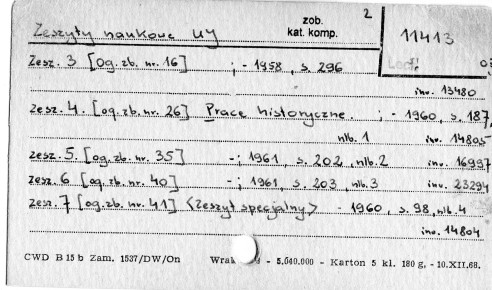 zob. 2
kat. komp.
Zeszyty naukowe UŁ 11413
Zesz. 3 [Og. zb. nr. 16] ; - 1958, s. 296
inv. 13480
Zesz. 4. [Og. zb. nr. 26] Prace historyczne. ; - 1960, s. 187,
nlb. 1 inv. 14805
Zesz. 5. [og. zb. nr. 35] -; 1961, s. 202, nlb. 2 inv. 16997
Zesz. 6 [og. zb. nr. 40] -; 1961, s. 203, nlb. 3 inv. 23294
Zesz. 7 [og. zb. nr. 41] <Zeszyt specjalny> - 1960, s. 98, nlb. 4
inv. 14804
CWD B 15 b Zam. 1537/DW/On - 5.040.000 - Karton 5 kl. 180 g. - 10.XII.68.